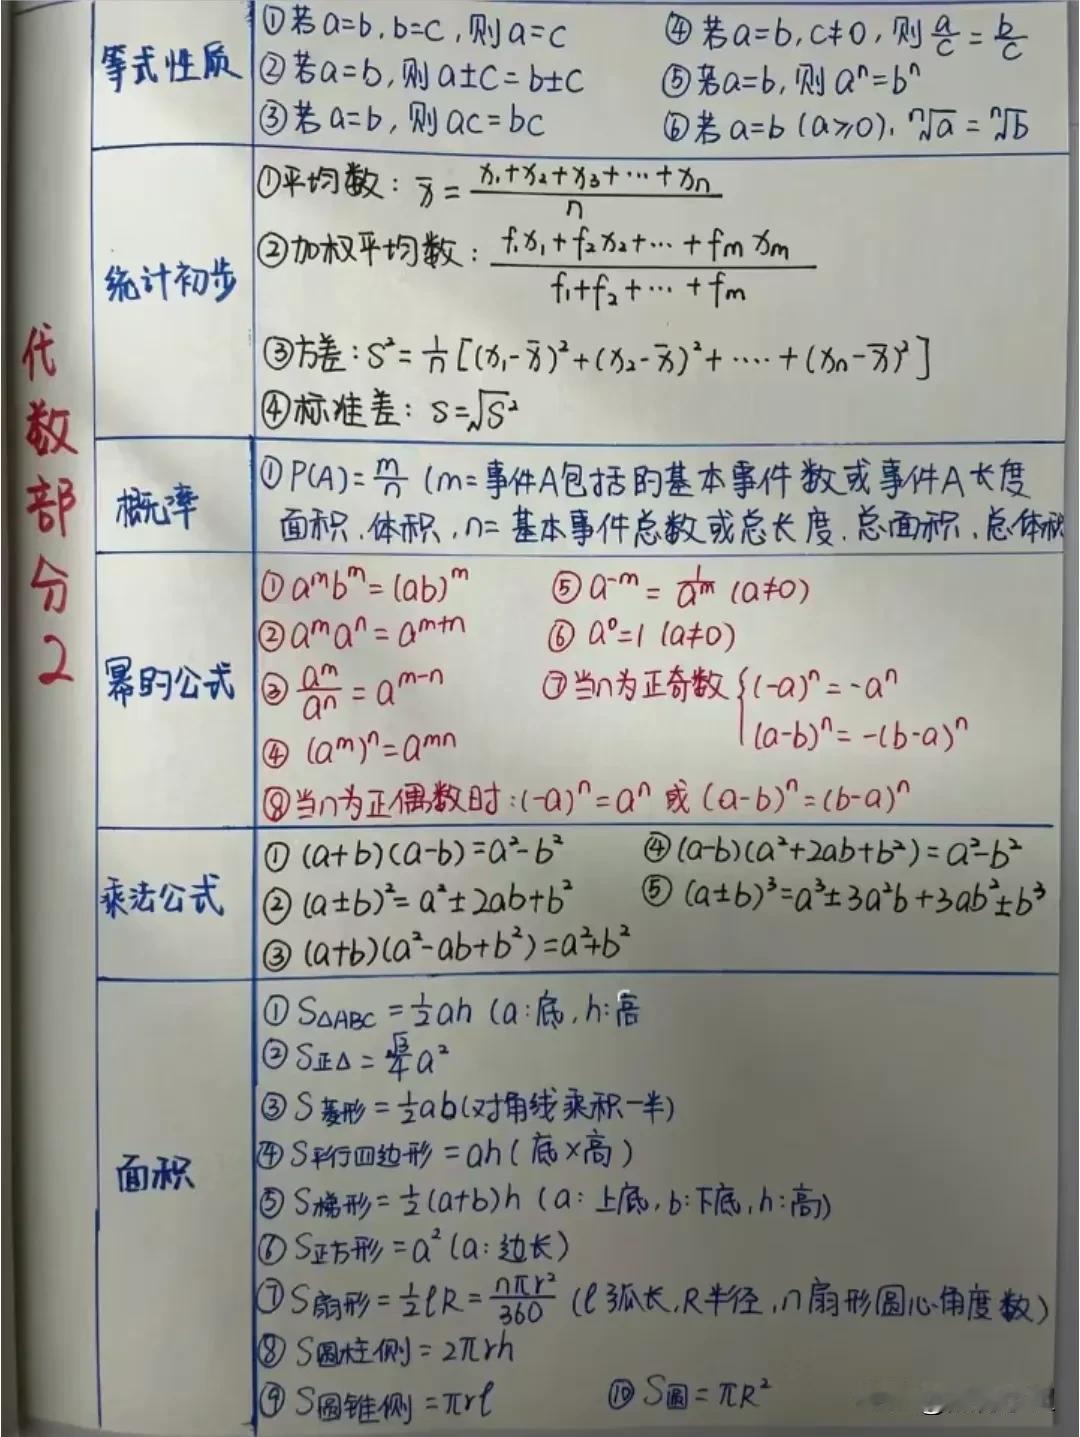 代数部分2
等式性质
①若a=b,b=c,则a=c ④若a=b,c≠0,则a/c=b/c
②若a=b,则a±c=b±c ⑤若a=b,则aⁿ=bⁿ
③若a=b,则ac=bc ⑥若a=b(a≥0),ⁿ√a=ⁿ√b
统计初步
①平均数:x̄=(x₁+x₂+x₃+…+xₙ)/n
②加权平均数:(f₁x₁+f₂x₂+…+fₘxₘ)/(f₁+f₂+…+fₘ)
③方差:S²=1/n[(x₁-x̄)²+(x₂-x̄)²+‥‥+(xₙ-x̄)²]
④标准差:S=√S²
概率
①P(A)=m/n(m=事件A包括的基本事件数或事件A长度
面积、体积,n=基本事件总数或总长度、总面积、总体积
幂的公式
①aᵐbᵐ=(ab)ᵐ ⑤a⁻ᵐ=1/aᵐ(a≠0)
②aᵐaⁿ=aᵐ⁺ⁿ ⑥a⁰=1(a≠0)
③aᵐ/aⁿ=aᵐ⁻ⁿ ⑦当n为正奇数{(-a)ⁿ=-aⁿ
(a-b)ⁿ=-(b-a)ⁿ
④(aᵐ)ⁿ=aᵐⁿ
⑧当n为正偶数时:(-a)ⁿ=aⁿ或(a-b)ⁿ=(b-a)ⁿ
乘法公式
①(a+b)(a-b)=a²-b² ④(a-b)(a²+2ab+b²)=a²-b²
②(a±b)²=a²±2ab+b² ⑤(a±b)³=a³±3a²b+3ab²±b³
③(a+b)(a²-ab+b²)=a²+b²
面积
①S△ABC=½ah(a:底,h:高
②S正△=√3/4a²
③S菱形=½ab(对角线乘积一半)
④S平行四边形=ah(底×高)
⑤S梯形=½(a+b)h(a:上底,b:下底,h:高)
⑥S正方形=a²(a:边长)
⑦S扇形=½ℓR=nπr²/360(ℓ弧长,R半径,n扇形圆心角度数)
⑧S圆柱侧=2πrh
⑨S圆锥侧=πrℓ ⑩S圆=πR²